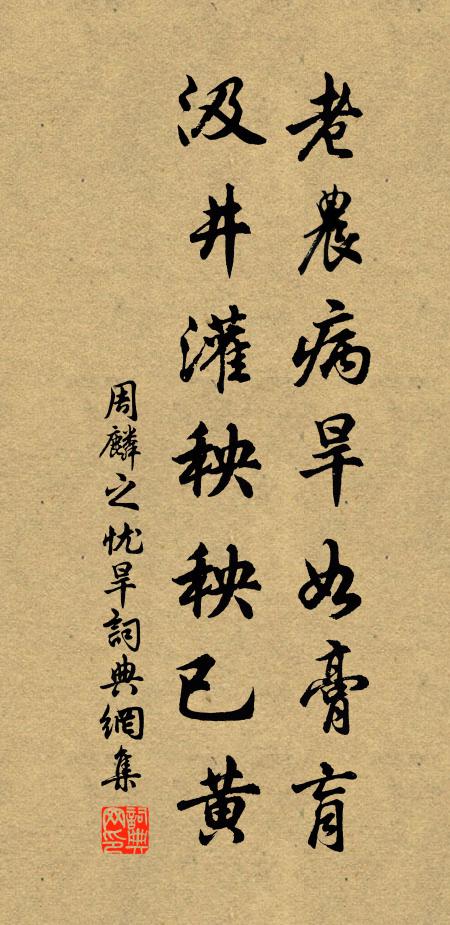 老農病旱如膏肓
汲井灌秧秧已黄
周麟之忧旱詞典網集
詞典网印